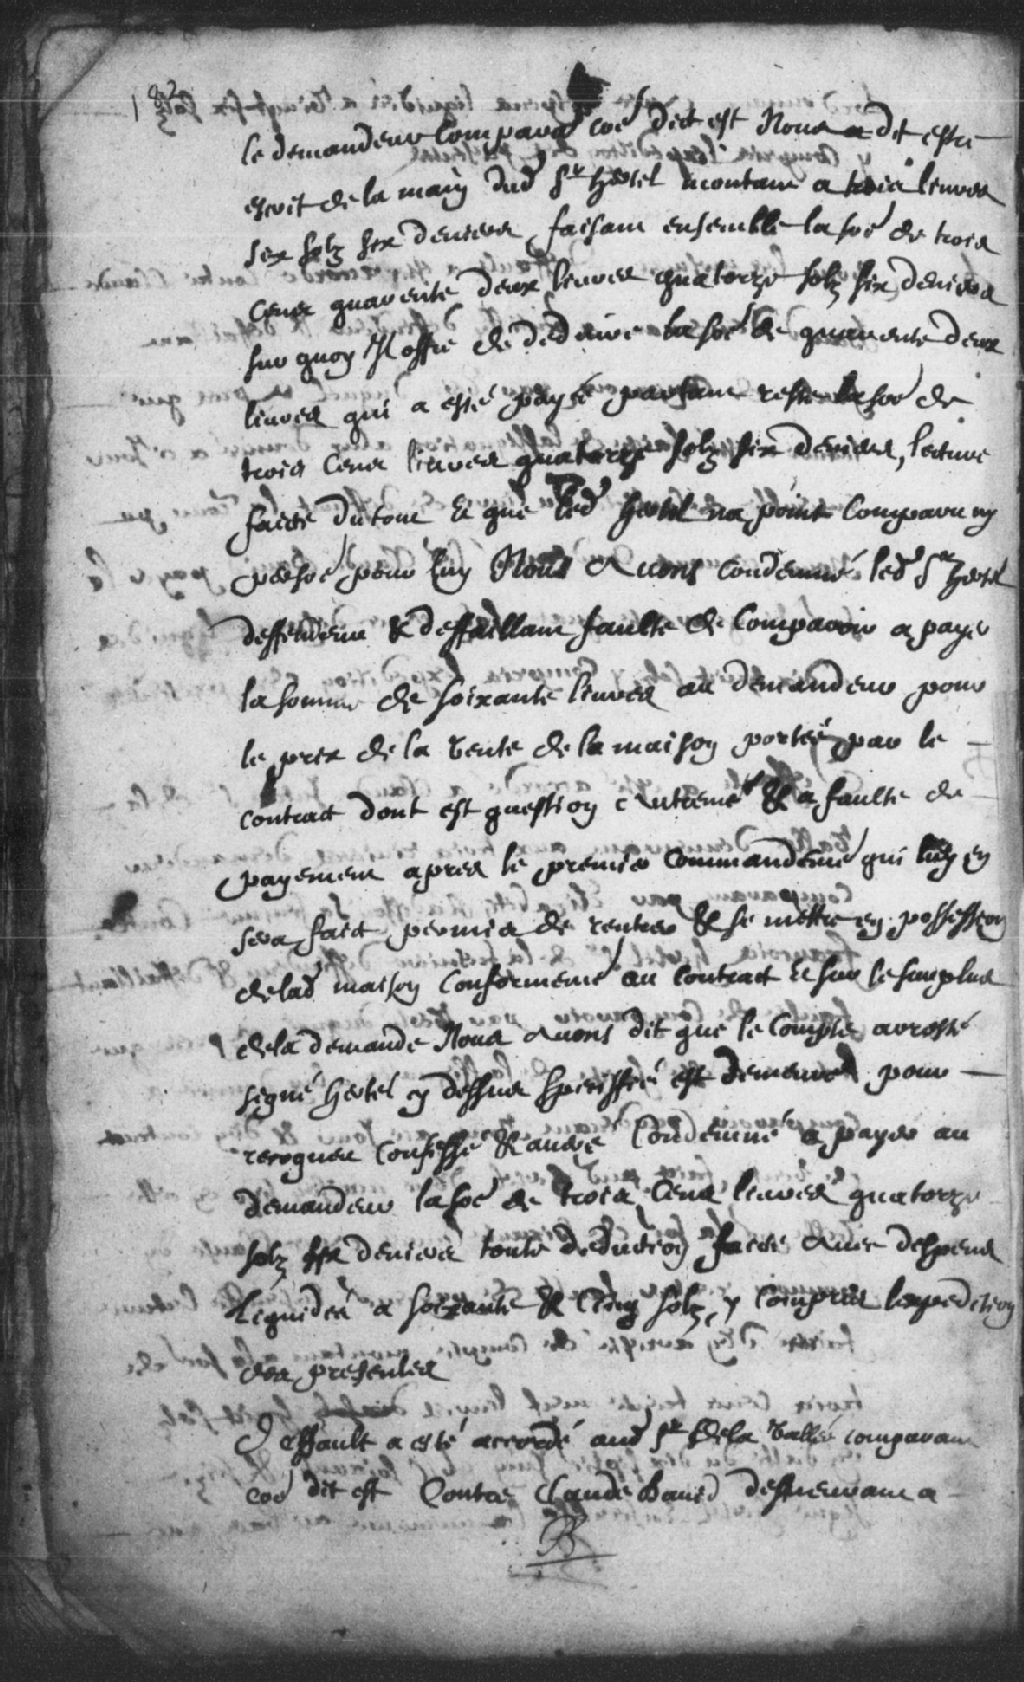 le demandeur Comparāt coē dict est Nous a dit estre
escrit de la main dud Sr hertel montant a trois liures
six solz six deniers, faisant ensemble la soē de trois
Cens quarente deux liures quatorze solz six deniers
sur quoy Il offre de deduire la soē de quarente deux
liures qui a esté payé partant reste la soē de
trois Cens liures quatorze solz six deniers, lecture
faite du tout Et que led hertel na point Comparu ny
persoē pour luy Nous Auons Condemné led Sr hertel
deffendeur & deffaillant faulte de Comparoir a payer
la somme de soixante liures au demandeur pour
le prix de la Vente de la maison portée par le
contract dont est question Autremēt & a faulte de
payement apres le premier Commandemēt qui luy en
sera faict permis de rentrer & se mettre en possession
de lad maison Conformemēt au Contract Et sur le surplus
de la demande Nous Auons dit que le Compte arresté
signé hertel cy dessus speciffié est demeuré pour
recognu Confessé & auéré Condemné a payer au
demandeur la soē de trois Cens liures quatorze
solz six deniers toute deduction faite Auec despens
liquidés a soixante & Cinq solz y Compris lexpedition
des presentes
Deffault a esté accordé aud Sr de la Vallée comparant
coē dit est Contre Claude Dauid deffendeur a